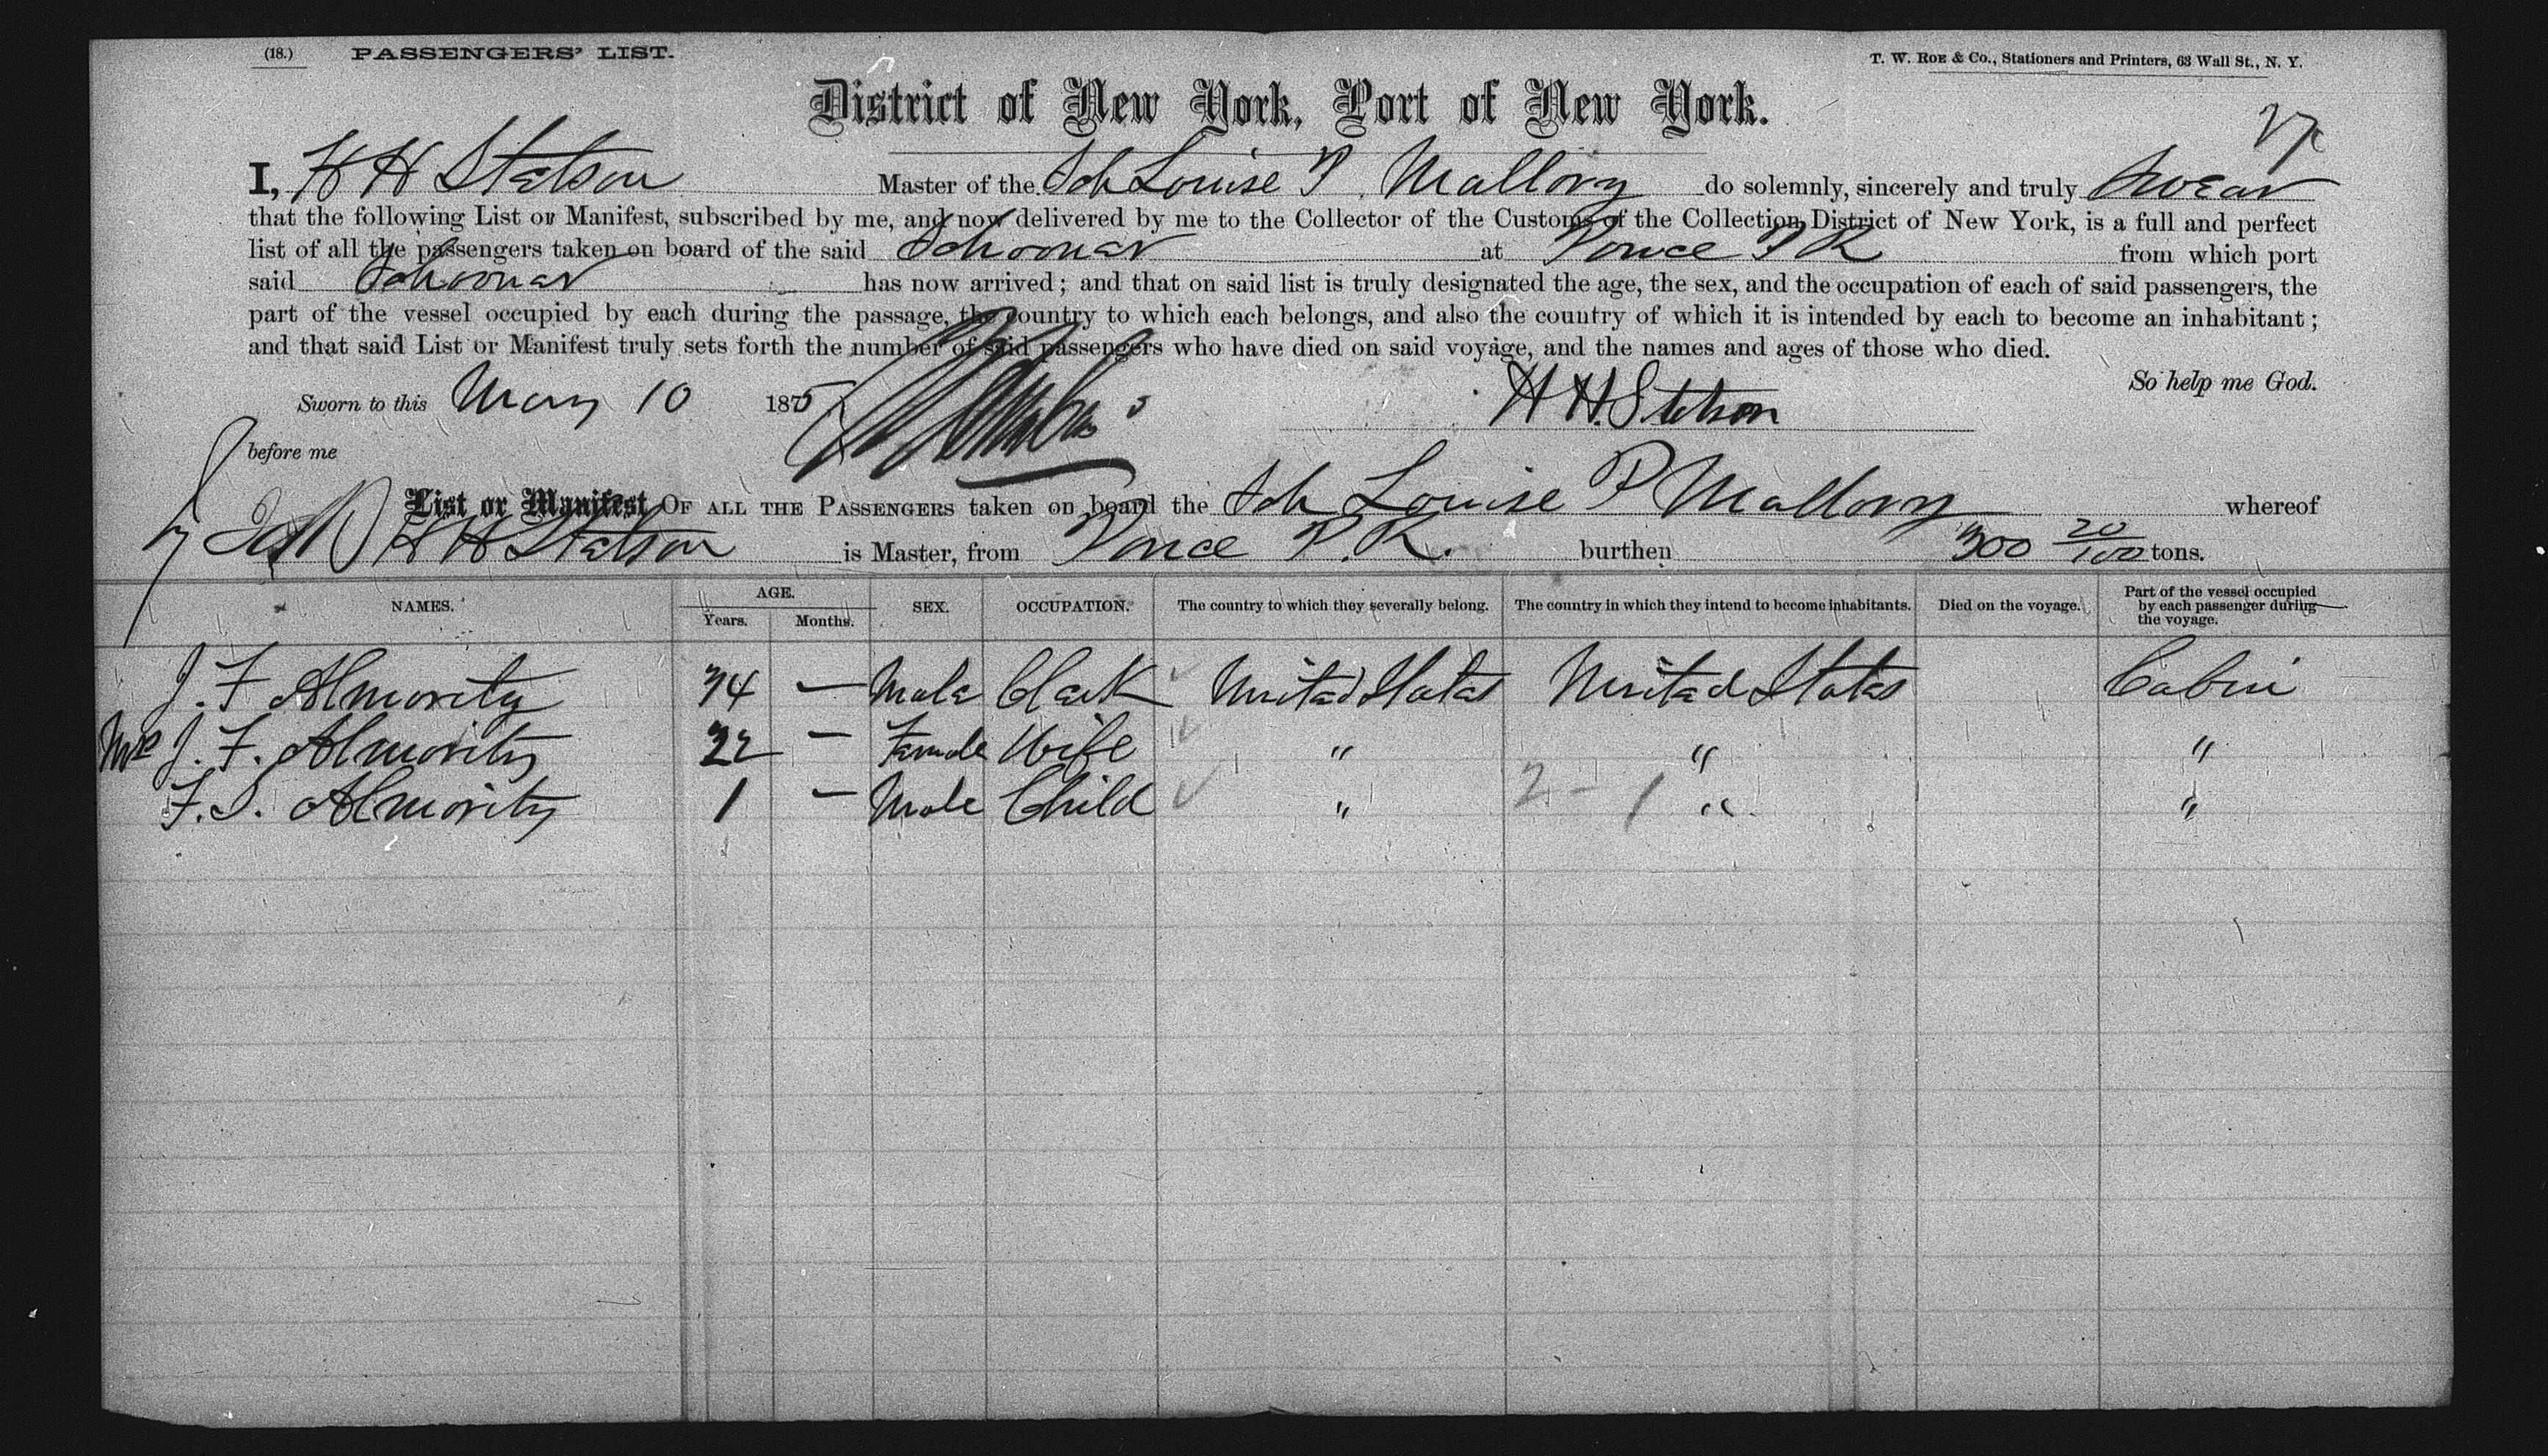 (18.) PASSENGERS' LIST.
T. W. ROE & Co., Stationers and Printers, 63 Wall St., N. Y.
District of New York, Port of New York.
27
I, H H Stetson Master of the Sch Louise P. Mallory do solemnly, sincerely and truly Swear
that the following List or Manifest, subscribed by me, and now delivered by me to the Collector of the Customs of the Collection District of New York, is a full and perfect
list of all the passengers taken on board of the said Schooner at Ponce P R from which port
said Schooner has now arrived; and that on said list is truly designated the age, the sex, and the occupation of each of said passengers, the
part of the vessel occupied by each during the passage, the country to which each belongs, and also the country of which it is intended by each to become an inhabitant;
and that said List or Manifest truly sets forth the number of said passengers who have died on said voyage, and the names and ages of those who died.
So help me God.
Sworn to this May 10 1875
H H. Stetson
before me
List or Manifest OF ALL THE PASSENGERS taken on board the Sch Louise P Mallory whereof
H H Stetson is Master, from Ponce P. R. burthen 300 20/100 tons.
NAMES. AGE. Years. Months. SEX. OCCUPATION. The country to which they severally belong. The country in which they intend to become inhabitants. Died on the voyage. Part of the vessel occupied by each passenger during the voyage.
J. F Almority 34 — Male Clerk United States United States Cabin
Mrs J. F. Almority 22 — Female Wife " " "
F. S. Almority 1 — Male Child " 2 - 1 " "